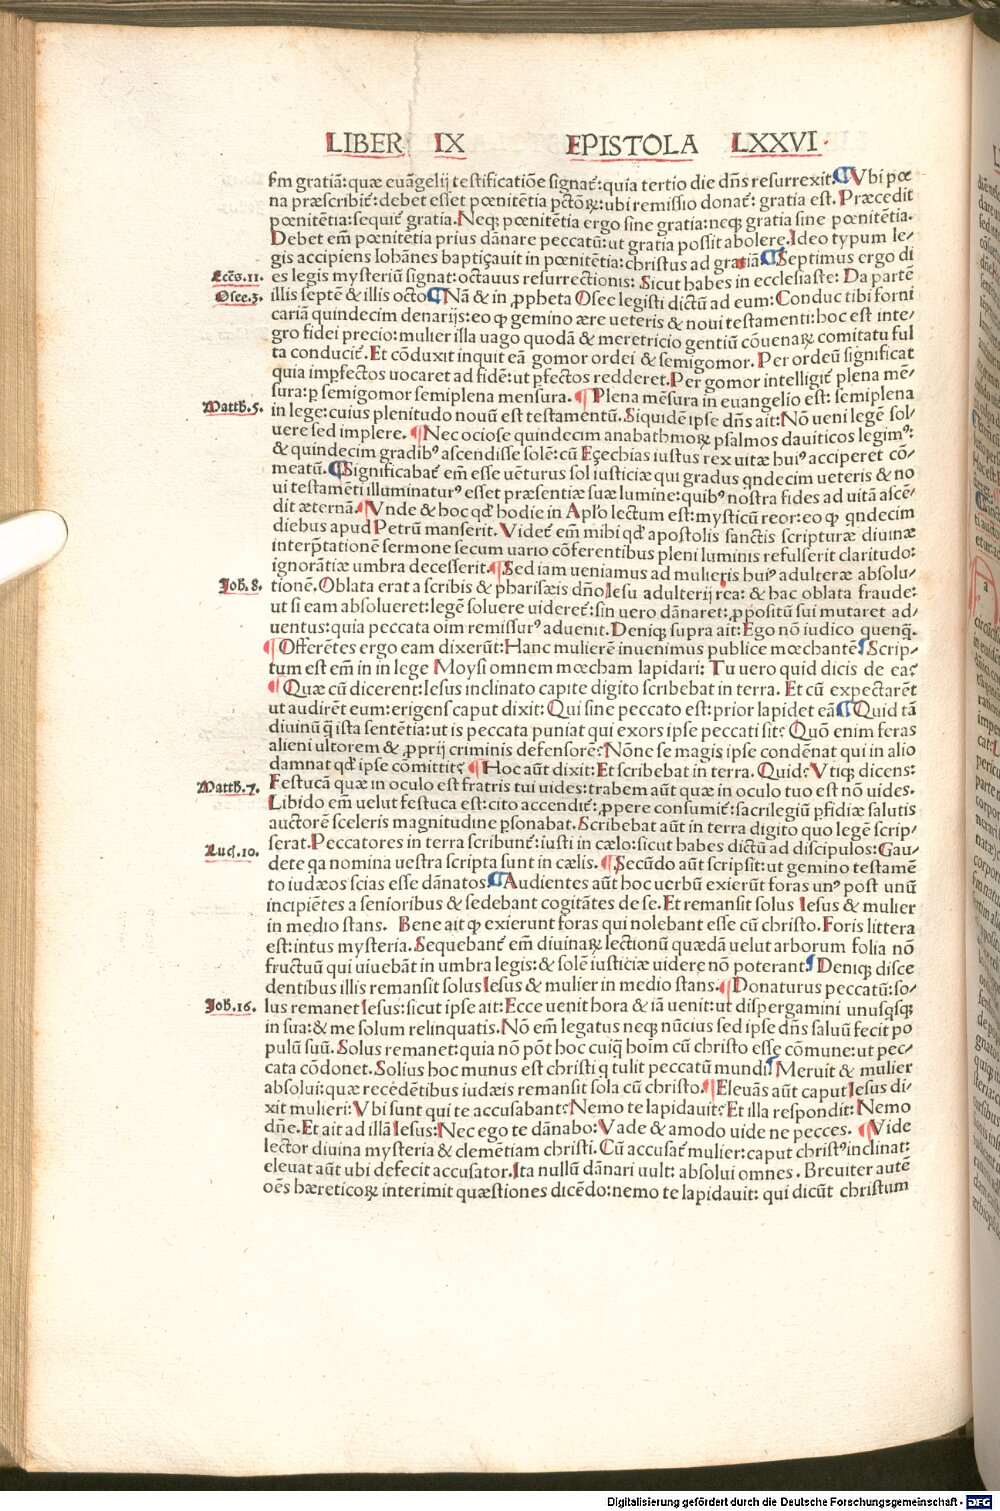 LIBER IX EPISTOLA LXXVI
ẜm gratiā: quæ euāgelij testificatiōe signat᷑: quia tertio die dn̄s resurrexit. ¶ Vbi pœ
na præscribit᷑: debet esse pœnitētia pctōꝝ: ubi remissio donat᷑: gratia est. Præcedit
pœnitētia: sequit᷑ gratia. Neqꝫ pœnitētia ergo sine gratia: neqꝫ gratia sine pœnitētia.
Debet em̄ pœnitētia prius dānare peccatū: ut gratia possit abolere. Ideo typum le-
gis accipiens Iohānes baptiçauit in pœnitētia: christus ad gratiā ¶ Septimus ergo di
Eccēs. 11. es legis mysteriū signat: octauus resurrectionis: Sicut habes in ecclesiaste: Da partē
Osee. 3. illis septē & illis octo ¶ Nā & in ꝓpheta Osee legisti dictū ad eum: Conduc tibi forni
cariā quindecim denarijs: eo ꝙ gemino ære ueteris & noui testamenti: hoc est inte-
gro fidei precio: mulier illa uago quodā & meretricio gentiū cōuenaꝝ comitatu ful
ta conducit᷑. Et cōduxit inquit eā gomor ordei & semigomor. Per ordeū significat
quia imꝑfectos uocaret ad fidē: ut ꝑfectos redderet. Per gomor intelligit᷑ plena mē-
sura: ꝑ semigomor semiplena mensura. ¶ Plena mēsura in euangelio est: semiplena
Matth. 5. in lege: cuius plenitudo nouū est testamentū. Siquidē ipse dn̄s ait: Nō ueni legē sol-
uere sed implere. ¶ Nec ociose quindecim anabathmoꝝ psalmos dauiticos legimꝰ:
& quindecim gradibꝰ ascendisse solē: cū Eçechias iustus rex uitæ huiꝰ acciperet cō-
meatū. ¶ Significabat᷑ em̄ esse uēturus sol iusticiæ qui gradus qndecim ueteris & no
ui testamēti illuminaturꝰ esset præsentiæ suæ lumine: quibꝰ nostra fides ad uitā ascē-
dit æternā. ¶ Vnde & hoc qd' hodie in Apl'o lectum est: mysticū reor: eo ꝙ qndecim
diebus apud Petrū manserit. Videt᷑ em̄ mihi qd' apostolis sanctis scripturæ diuinæ
interp̄tationē sermone secum uario cōferentibus pleni luminis refulserit claritudo:
ignorātiæ umbra decesserit. ¶ Sed iam ueniamus ad mulieris huiꝰ adulteræ absolu-
Joh. 8. tionē. Oblata erat a scribis & pharisæis dn̄o Iesu adulterij rea: & hac oblata fraude:
ut si eam absolueret: legē soluere uideret᷑: sin uero dānaret: ꝓpositū sui mutaret ad-
uentus: quia peccata oim remissurꝰ aduenit. Deniqꝫ supra ait: Ego nō iudico quenqꝫ.
¶ Offerētes ergo eam dixerūt: Hanc mulierē inuenimus publice mœchantē ¶ Scrip-
tum est em̄ in in lege Moysi omnem mœcham lapidari: Tu uero quid dicis de ea?
¶ Quæ cū dicerent: Iesus inclinato capite digito scribebat in terra. Et cū expectarēt
ut audirēt eum: erigens caput dixit: Qui sine peccato est: prior lapidet eā ¶ Quid tā
diuinū q̄ ista sentētia: ut is peccata puniat qui exors ipse peccati sit? Quō enim feras
alieni ultorem & ꝓprij criminis defensorē? Nōne se magis ipse condēnat qui in alio
damnat qd' ipse cōmittit? ¶ Hoc aūt dixit: Et scribebat in terra. Quid? Vtiqꝫ dicens:
Matth. 7. Festucā quæ in oculo est fratris tui uides: trabem aūt quæ in oculo tuo est nō uides.
Libido em̄ uelut festuca est: cito accendit᷑: ꝓpere consumit᷑: sacrilegiū ꝑfidiæ salutis
auctorē sceleris magnitudine ꝑsonabat. Scribebat aūt in terra digito quo legē scrip-
serat. Peccatores in terra scribunt᷑: iusti in cælo: sicut habes dictū ad discipulos: Gau-
Luc. 10. dete qa nomina uestra scripta sunt in cælis. ¶ Secūdo aūt scripsit: ut gemino testamē
to iudæos scias esse dānatos. ¶ Audientes aūt hoc uerbū exierūt foras unꝰ post unū
incipiētes a senioribus & sedebant cogitātes de se. Et remansit solus Iesus & mulier
in medio stans. Bene ait ꝙ exierunt foras qui nolebant esse cū christo. Foris littera
est: intus mysteria. Sequebant᷑ em̄ diuinaꝝ lectionū quædā uelut arborum folia nō
fructuū qui uiuebāt in umbra legis: & solē iusticiæ uidere nō poterant. ¶ Deniqꝫ disce
dentibus illis remansit solus Iesus & mulier in medio stans. ¶ Donaturus peccatū: so-
Joh. 16. lus remanet Iesus: sicut ipse ait: Ecce uenit hora & iā uenit: ut dispergamini unusqsqꝫ
in sua: & me solum relinquatis. Nō em̄ legatus neqꝫ nūcius sed ipse dn̄s saluū fecit po
pulū suū. Solus remanet: quia nō pōt hoc cuiq̄ hoim cū christo esse cōmune: ut pec-
cata cōdonet. Solius hoc munus est christi q tulit peccatū mundi ¶ Meruit & mulier
absolui: quæ recedētibus iudæis remansit sola cū christo. ¶ Eleuās aūt caput Iesus di-
xit mulieri: Vbi sunt qui te accusabant? Nemo te lapidauit? Et illa respondit: Nemo
dn̄e. Et ait ad illā Iesus: Nec ego te dānabo: Vade & amodo uide ne pecces. ¶ Vide
lector diuina mysteria & clemētiam christi. Cū accusat᷑ mulier: caput christꝰ inclinat:
eleuat aūt ubi defecit accusator. Ita nullū dānari uult: absolui omnes. Breuiter autē
oēs hæreticoꝝ interimit quæstiones dicēdo: nemo te lapidauit: qui dicūt christum
Digitalisierung gefördert durch die Deutsche Forschungsgemeinschaft - DFG